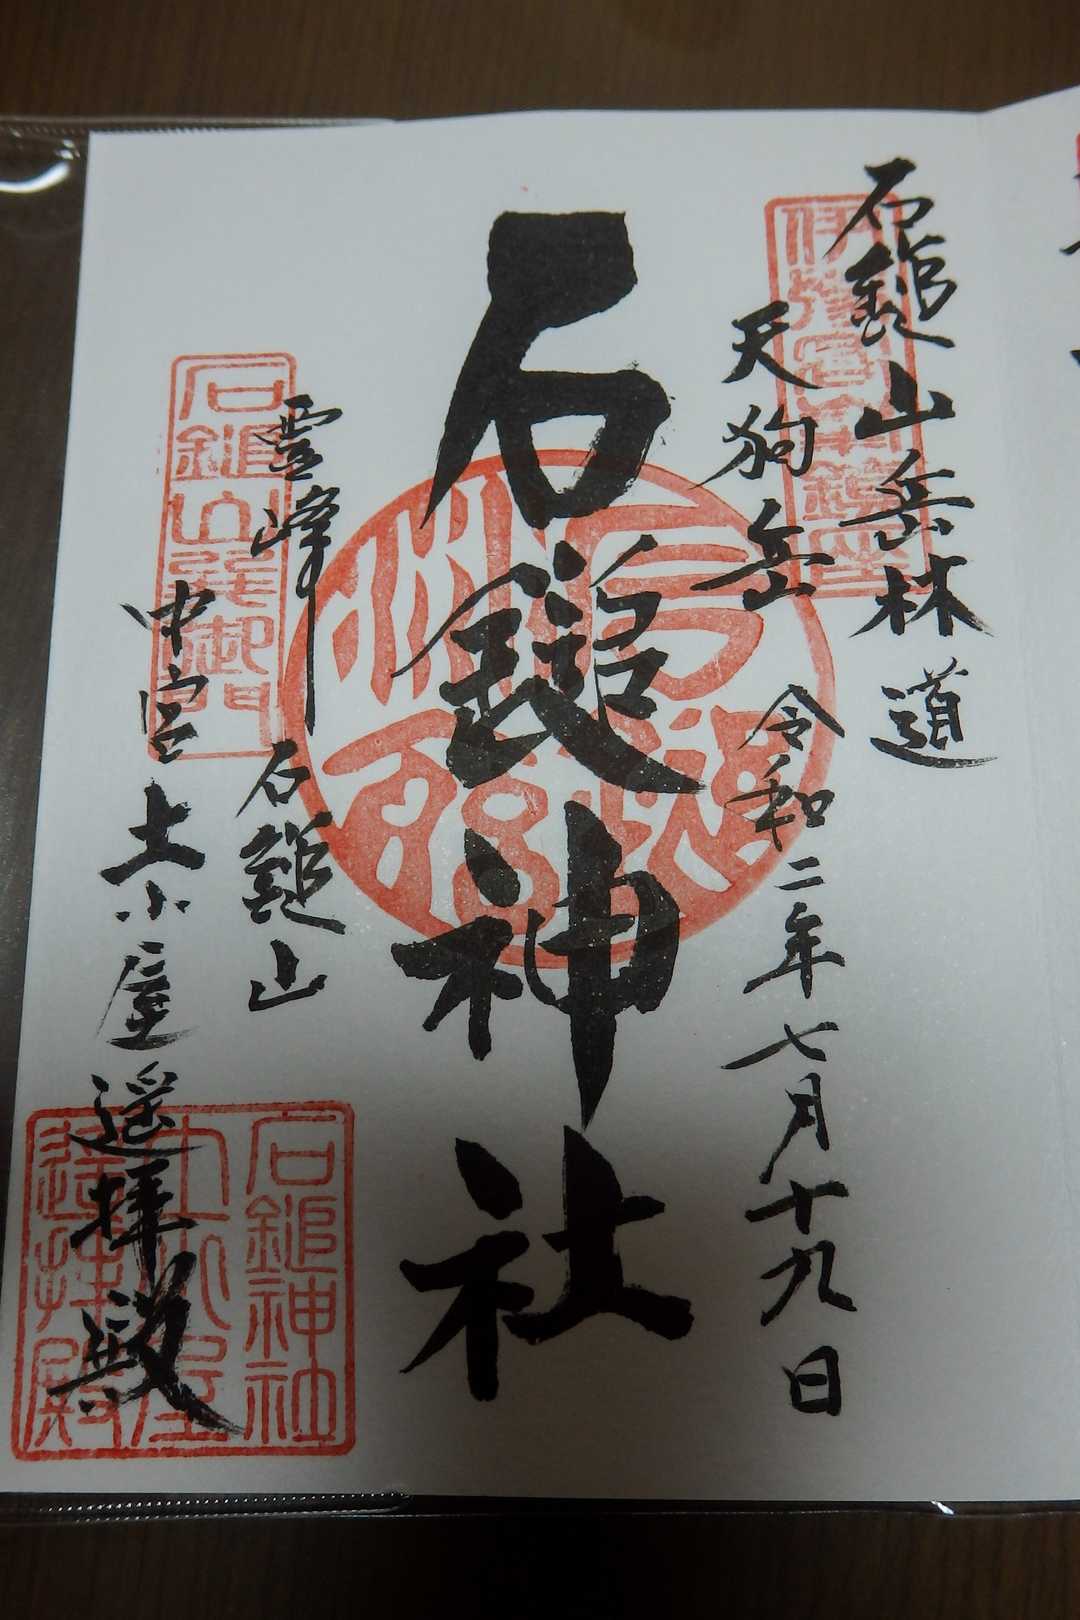 石鎚山岳林道
天狗岳
令和二年七月十九日
石鎚神社
霊峰
石鎚山
中宮
土小屋遥拝殿
石鎚山巽御門
石鎚神社
土小屋
遥拝殿